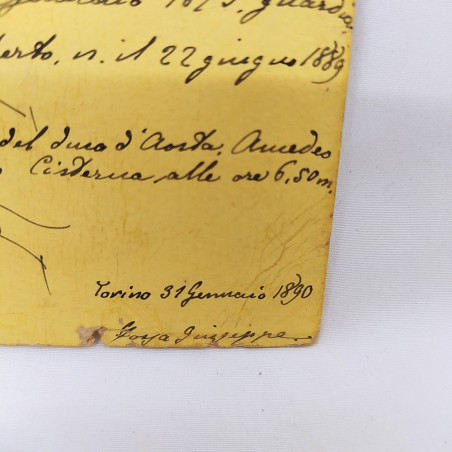 gennaio 1873, guardia
erto, n. il 22 giugno 1889
del duca d'Aosta, Amedeo
Cisterna alle ore 6,50 m.
Torino 31 Gennaio 1890
Giuseppe